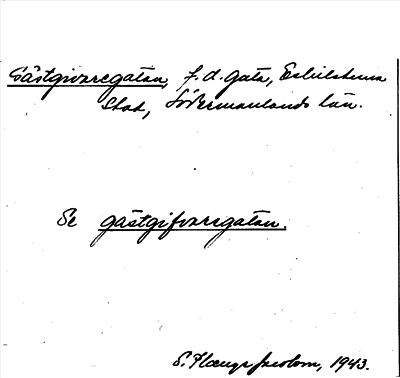 Gästgivaregatan, f. d. gata, Eskilstuna
stad, Södermanlands län.
Se gästgifvaregatan.
S. 1943.